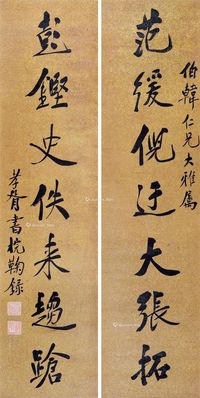 伯韓仁兄大雅屬
范緩倪迂大張拓
彭鏗史佚来趨蹌
孝胥書於鞠錄